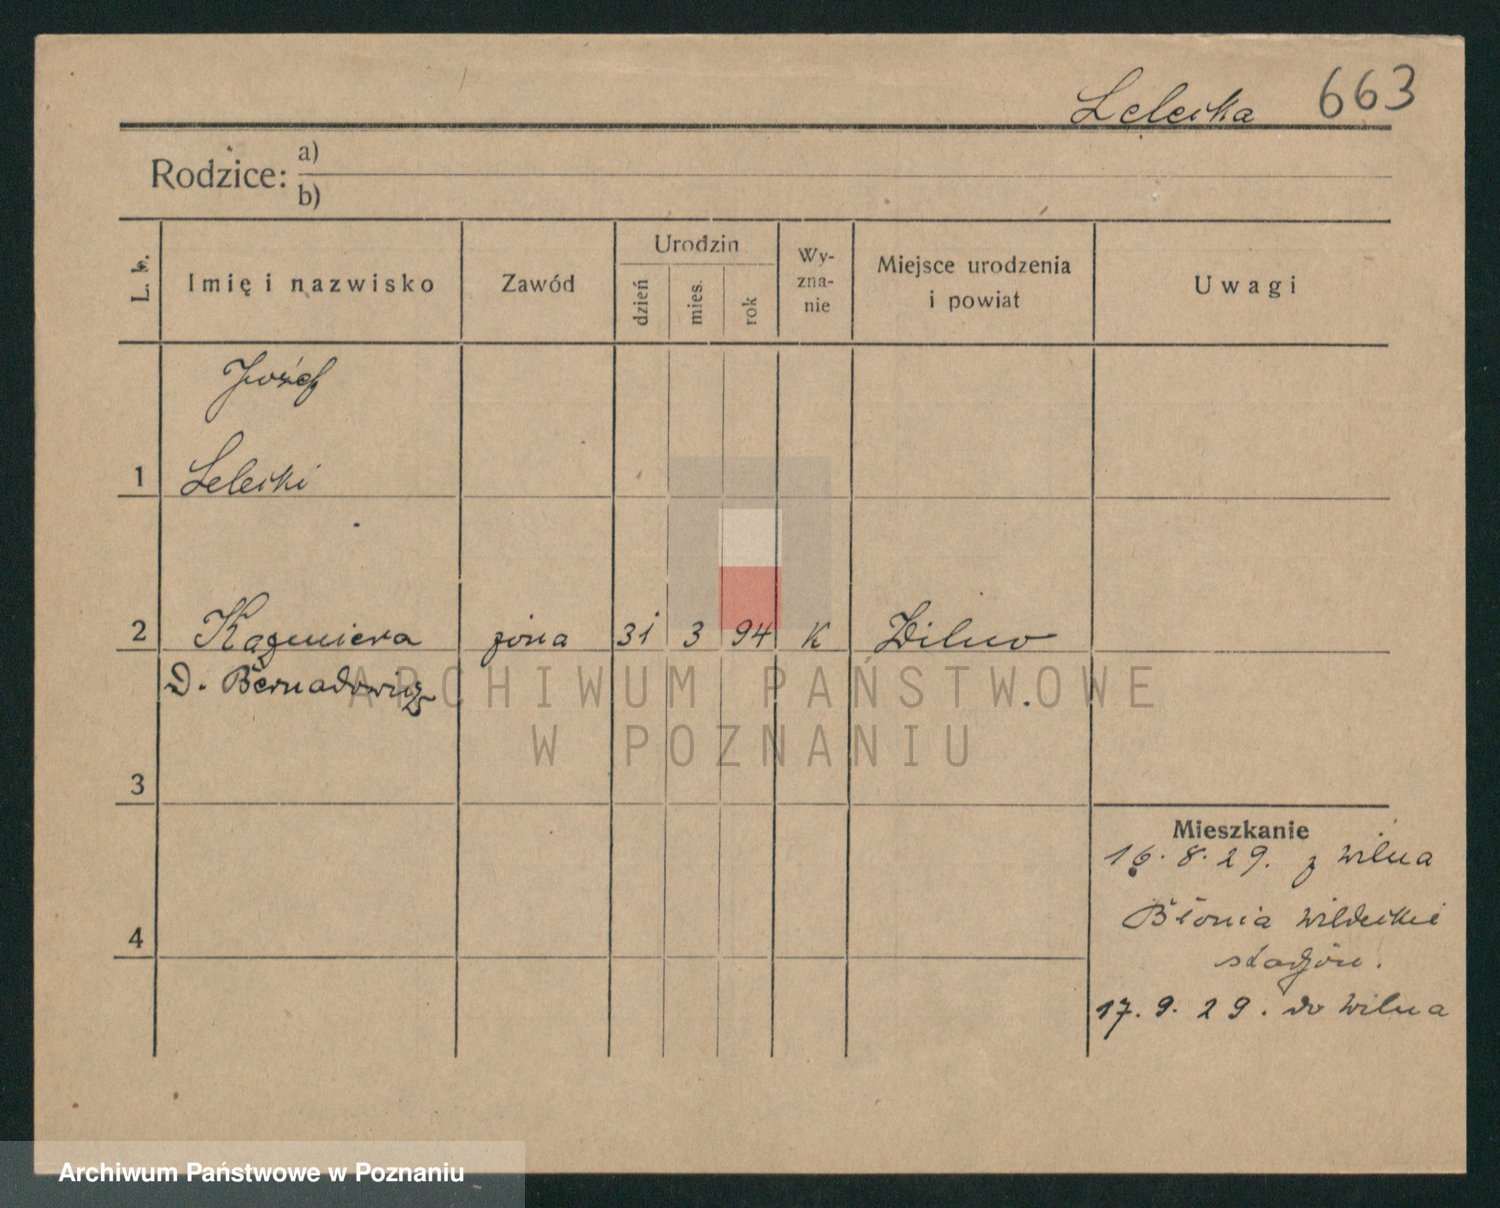 Lelecka 663
Rodzice: a)
b)
L. b. Imię i nazwisko Zawód Urodzin dzień mies. rok Wy-zna-nie Miejsce urodzenia i powiat Uwagi
Józef
1 Lelecki
2 Kazimiera żona 31 3 94 K Wilno
D. Bernadowicz
3
Mieszkanie
16. 8. 29. z Wilna
4 Błonia Wildeckie
stadjon.
17. 9. 29. do Wilna
ARCHIWUM PAŃSTWOWE
W POZNANIU
Archiwum Państwowe w Poznaniu